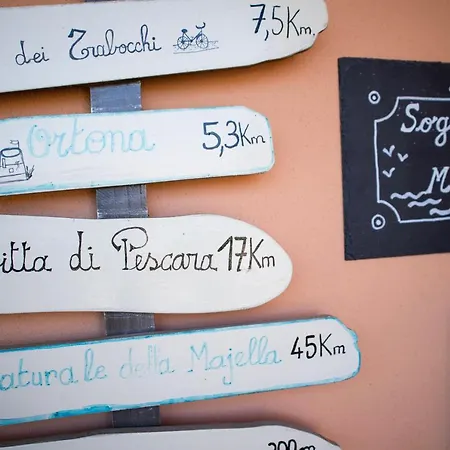 dei Trabocchi 7,5Km.
Ortona 5,3Km
itta di Pescara 17Km
aturale della Majella 45Km
200m
Sog
M